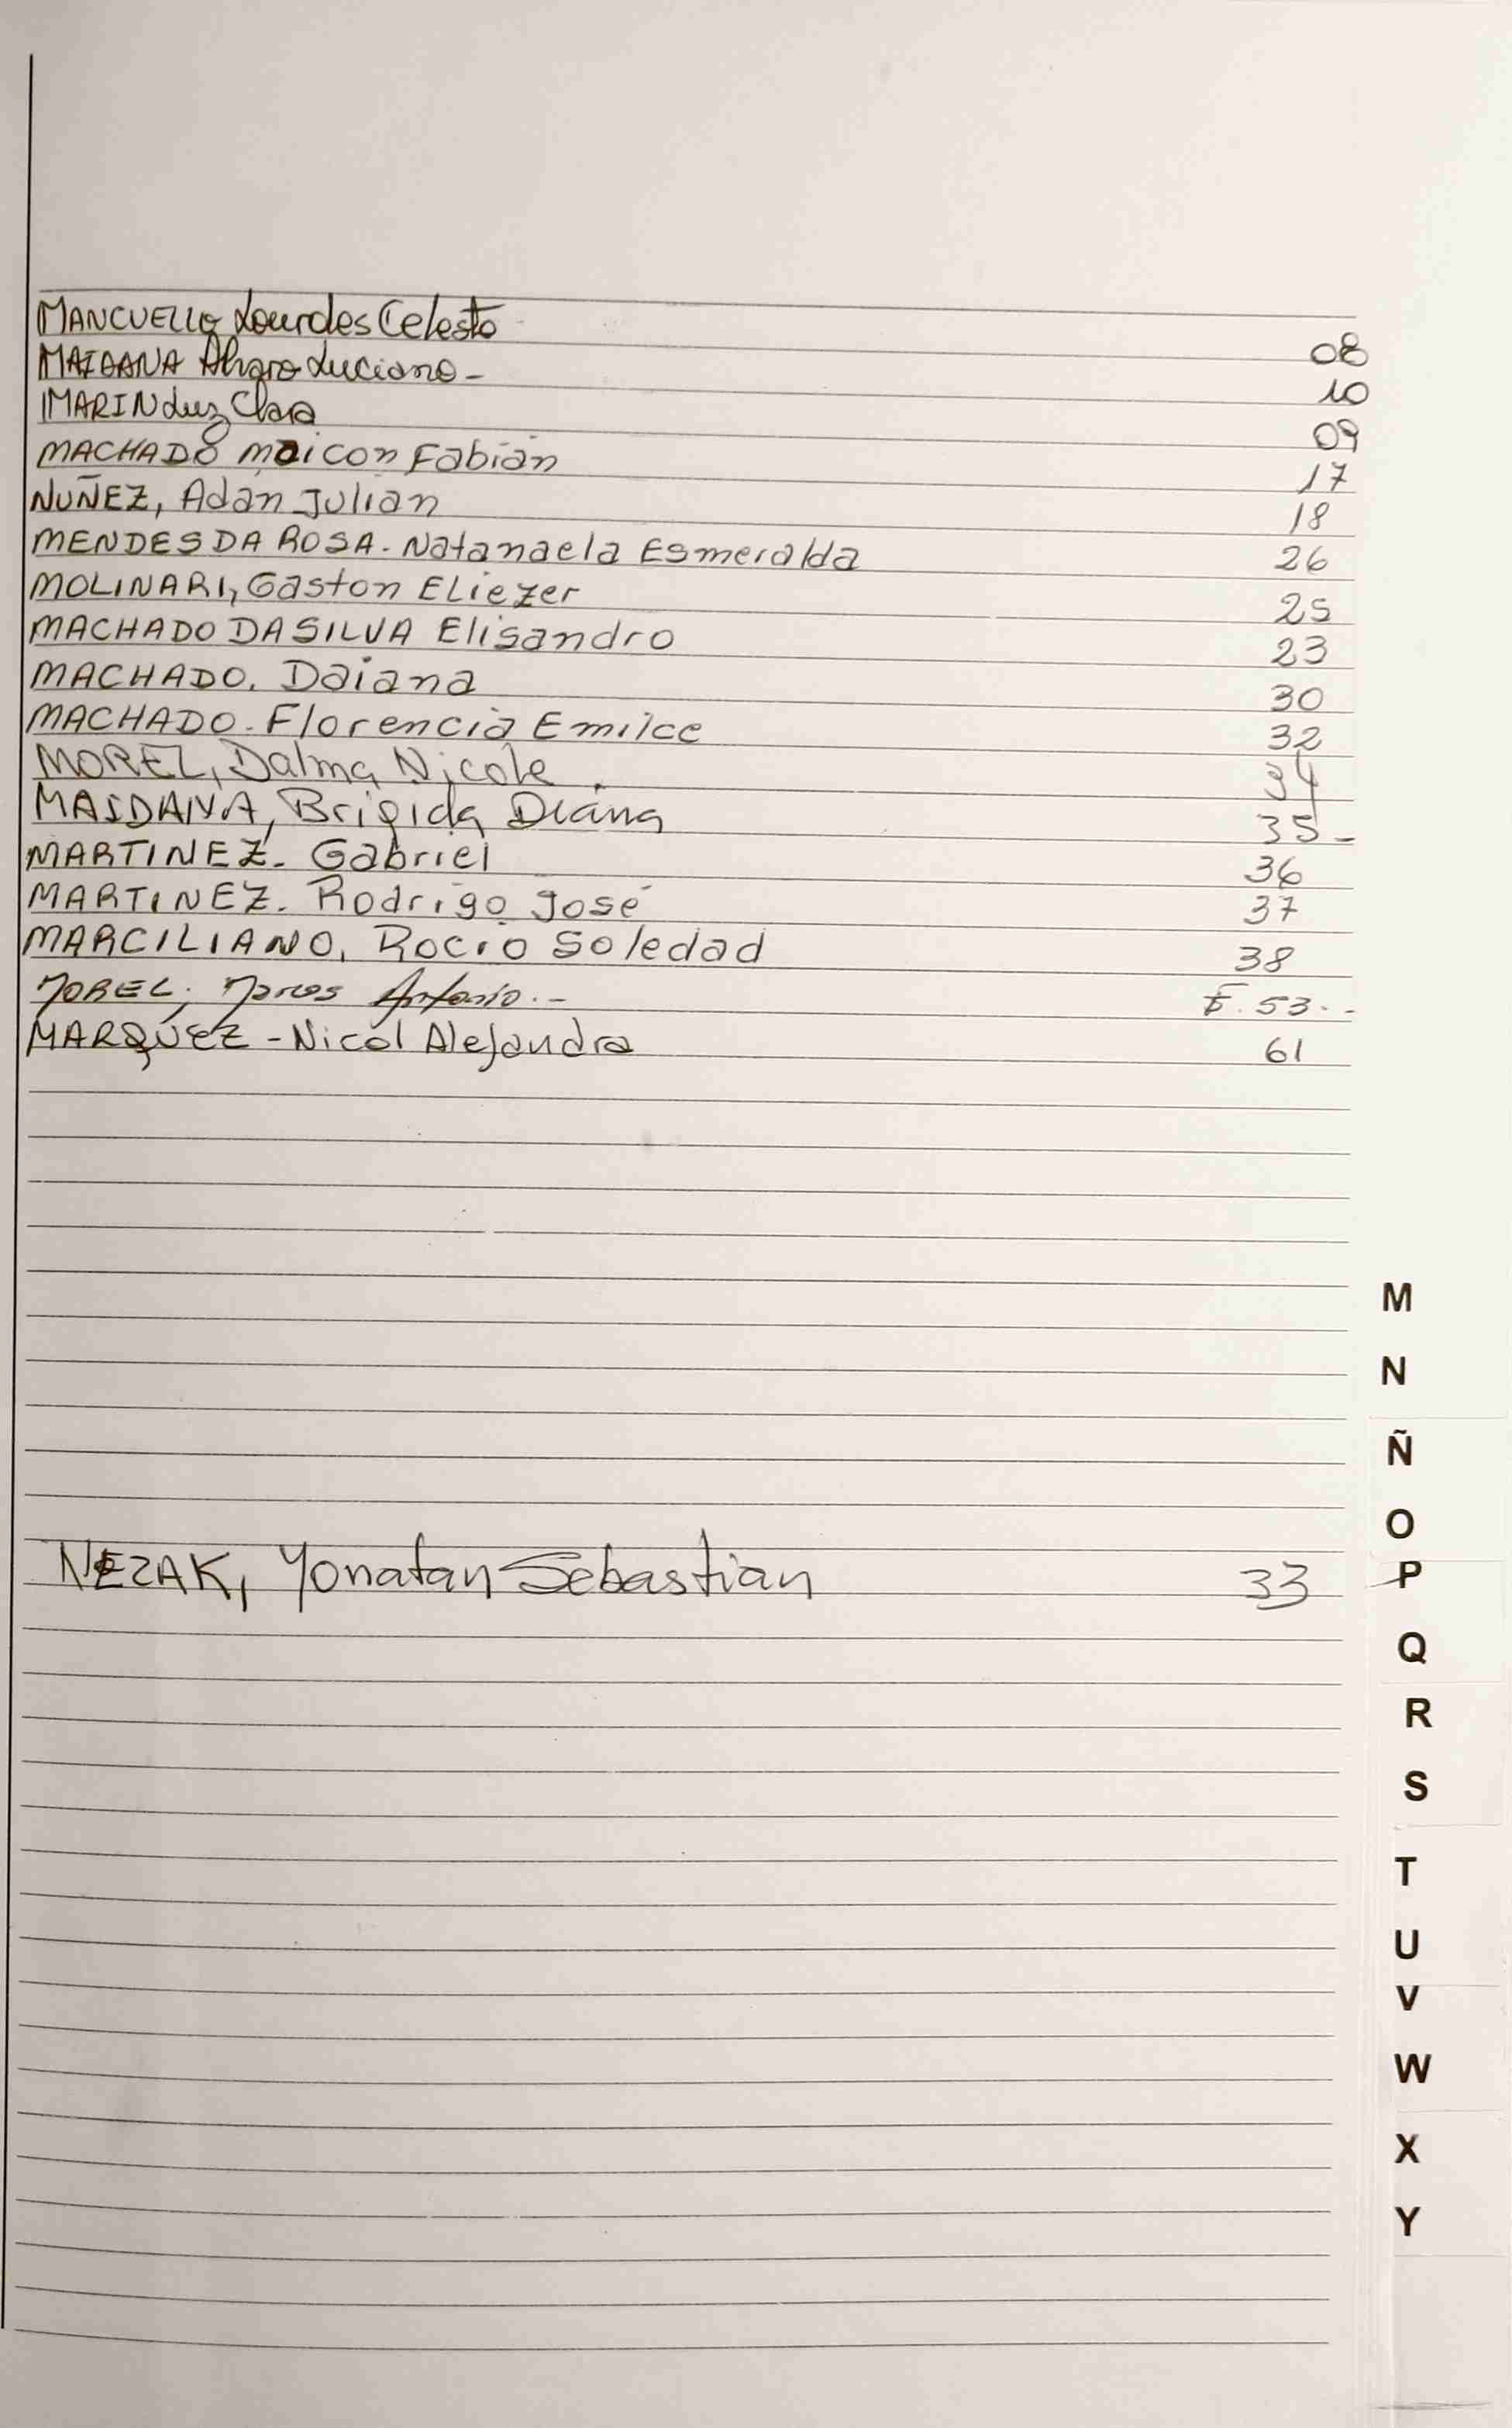 MANCUELLO Lourdes Celeste 08
MAIDANA Alvaro Luciano - 10
MARIN Luz Clara 09
MACHADO Maicon Fabián 17
NUÑEZ, Adán Julián 18
MENDES DA ROSA. Natanaela Esmeralda 26
MOLINARI, Gaston ELiezer 25
MACHADO DA SILVA Elisandro 23
MACHADO. Daiana 30
MACHADO. Florencia Emilce 32
MOREL, Dalma Nicole 34
MAIDANA, Brigida Diana 35-
MARTINEZ. Gabriel 36
MARTINEZ. Rodrigo José 37
MARCILIANO. Rocio Soledad 38
MOREL; Marcos Antonio.- F. 53.-
MARQUEZ - Nicol Alejandra 61
M
N
Ñ
O
NEZAK, Yonatan Sebastian 33
P
Q
R
S
T
U
V
W
X
Y